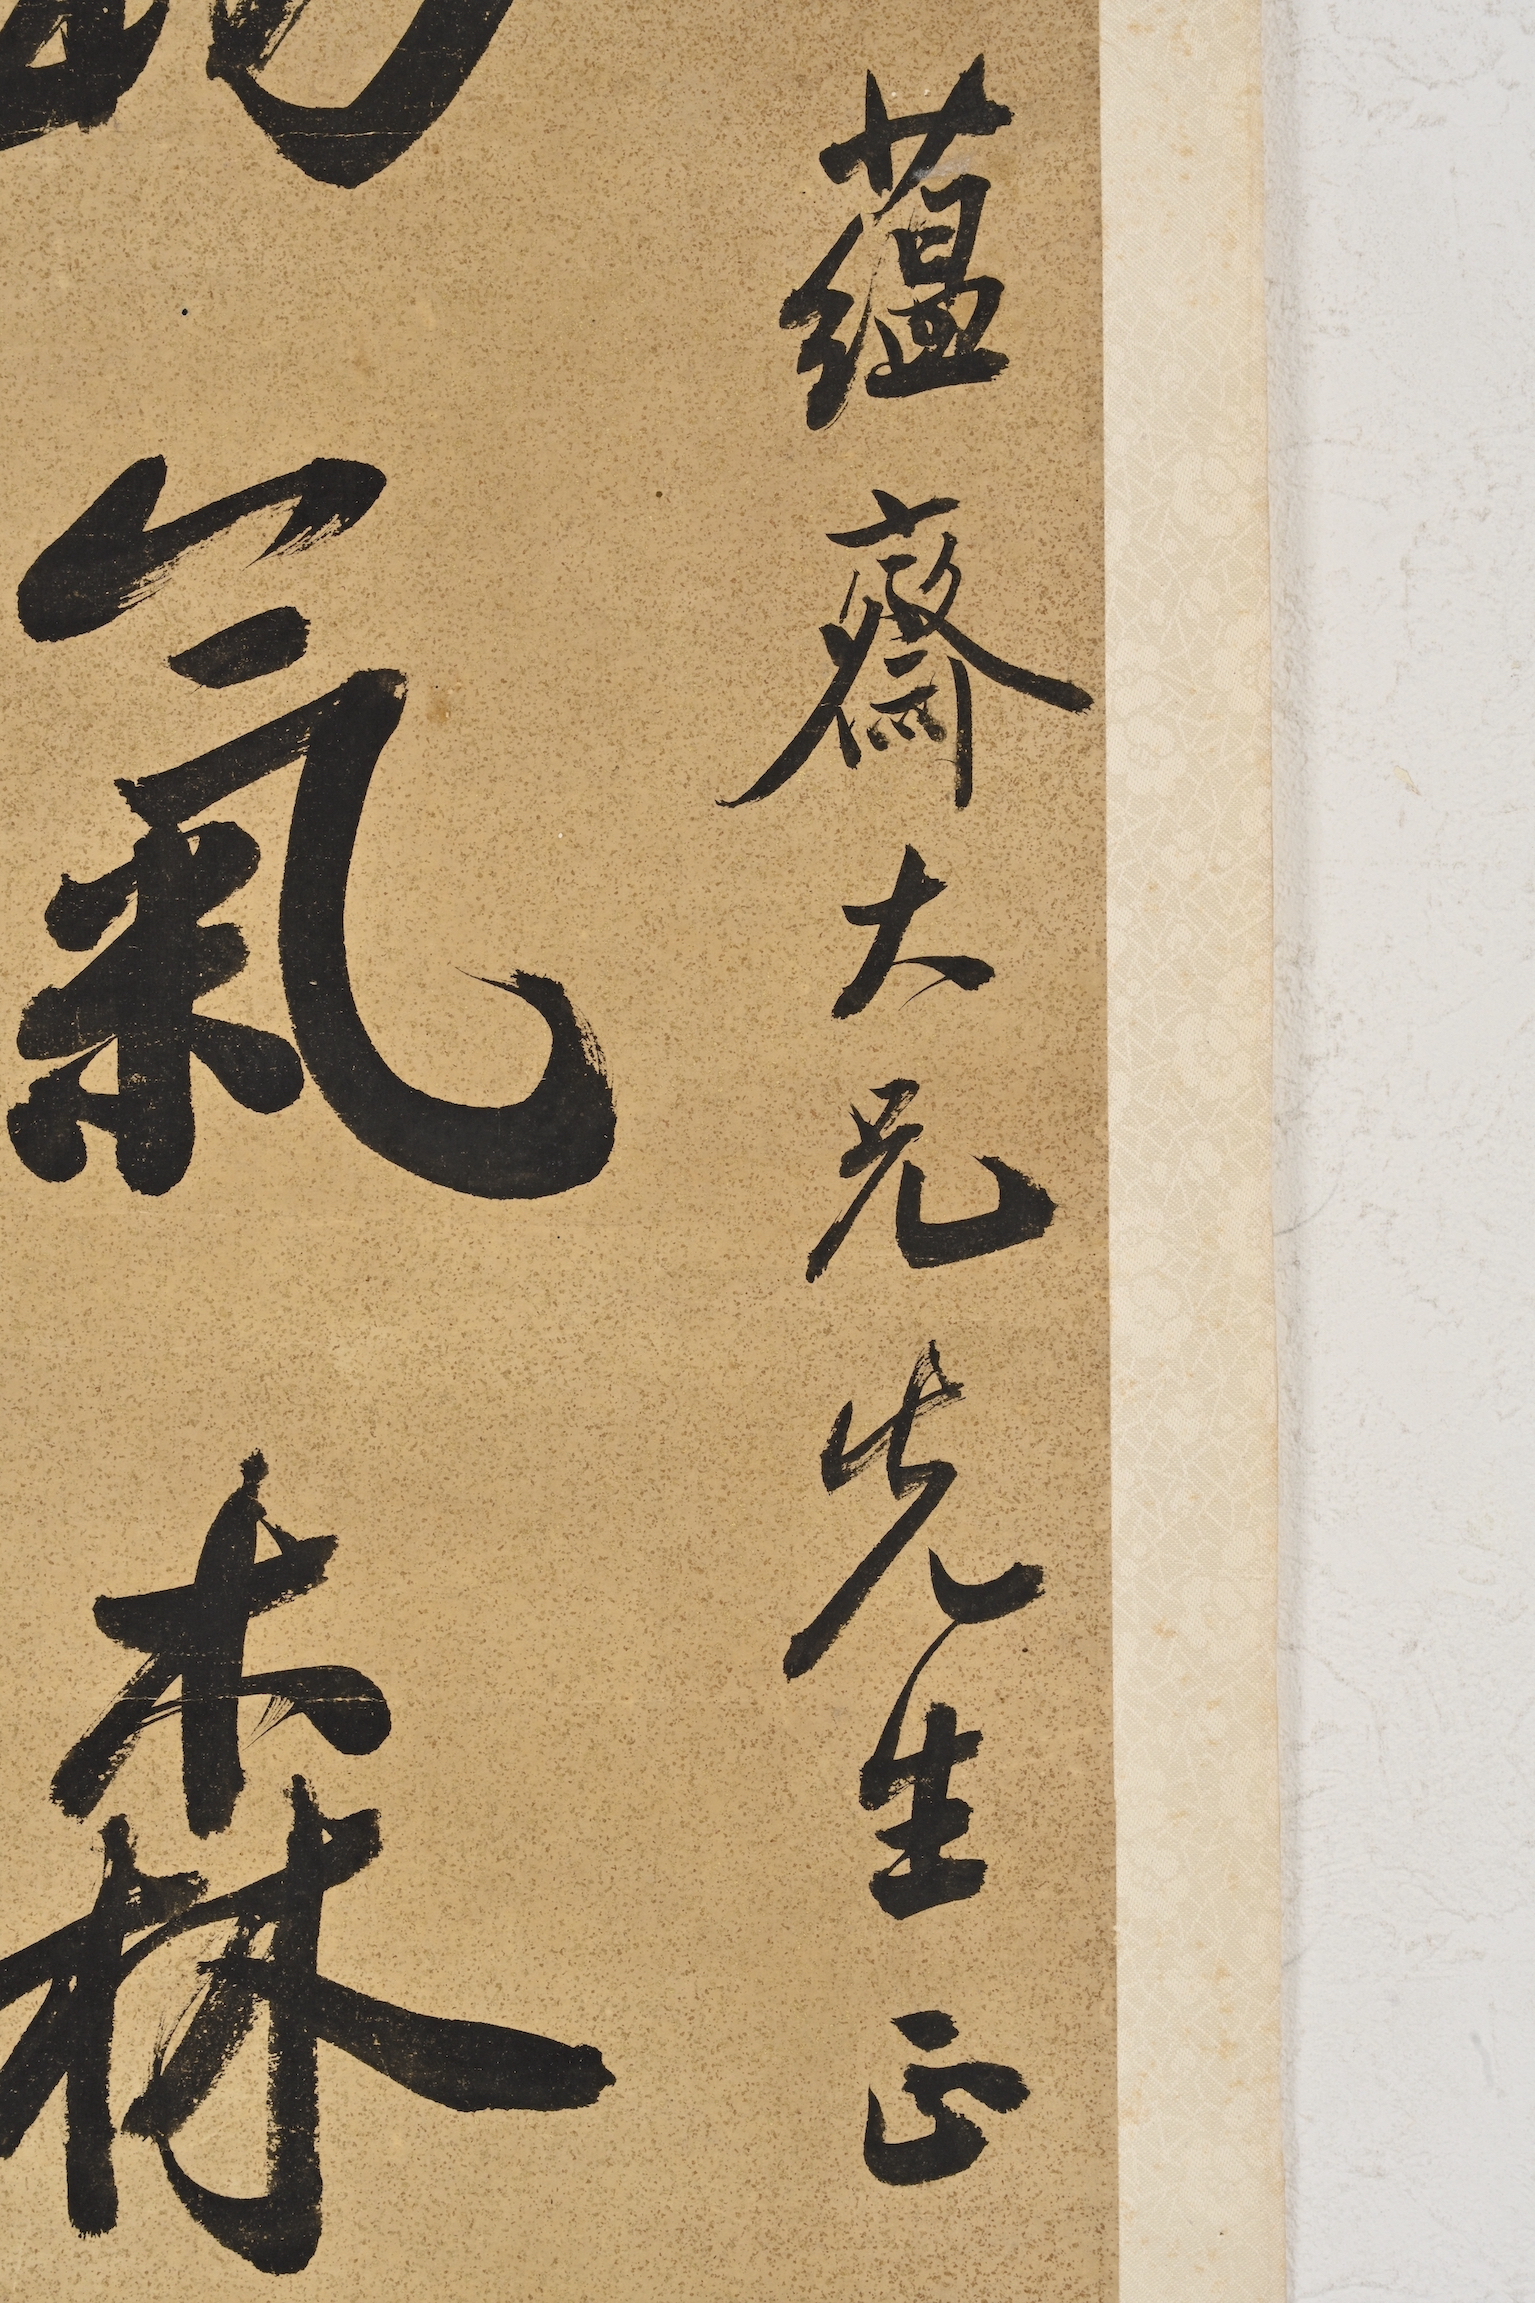 蘊齋大兄先生正
氣森